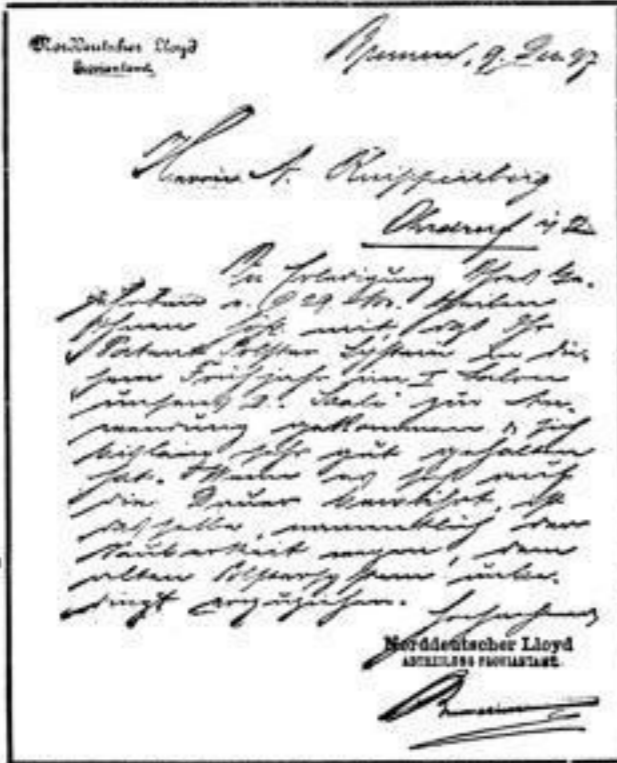 Norddeutscher Lloyd
Proviantamt.
Bremen, 9. Dec. 97
Herrn A. Knippenberg
Ohrdruf i/T.
In Erledigung Ihres Ge-
ehrten v. 29. theilen
Ihnen höfl. mit, daß Ihr
Patent Polster System in die-
sem Frühjahr im I Salon
unseres D. "Saale" zur An-
wendung gekommen & sich
bislang sehr gut gehalten
hat. Wenn es sich auf
die Dauer bewährt, ist
dasselbe, namentlich der
Sauberkeit wegen, dem
alten Polstersystem unbe-
dingt vorzuziehen.
Norddeutscher Lloyd
ABTHEILUNG PROVIANTAMT.